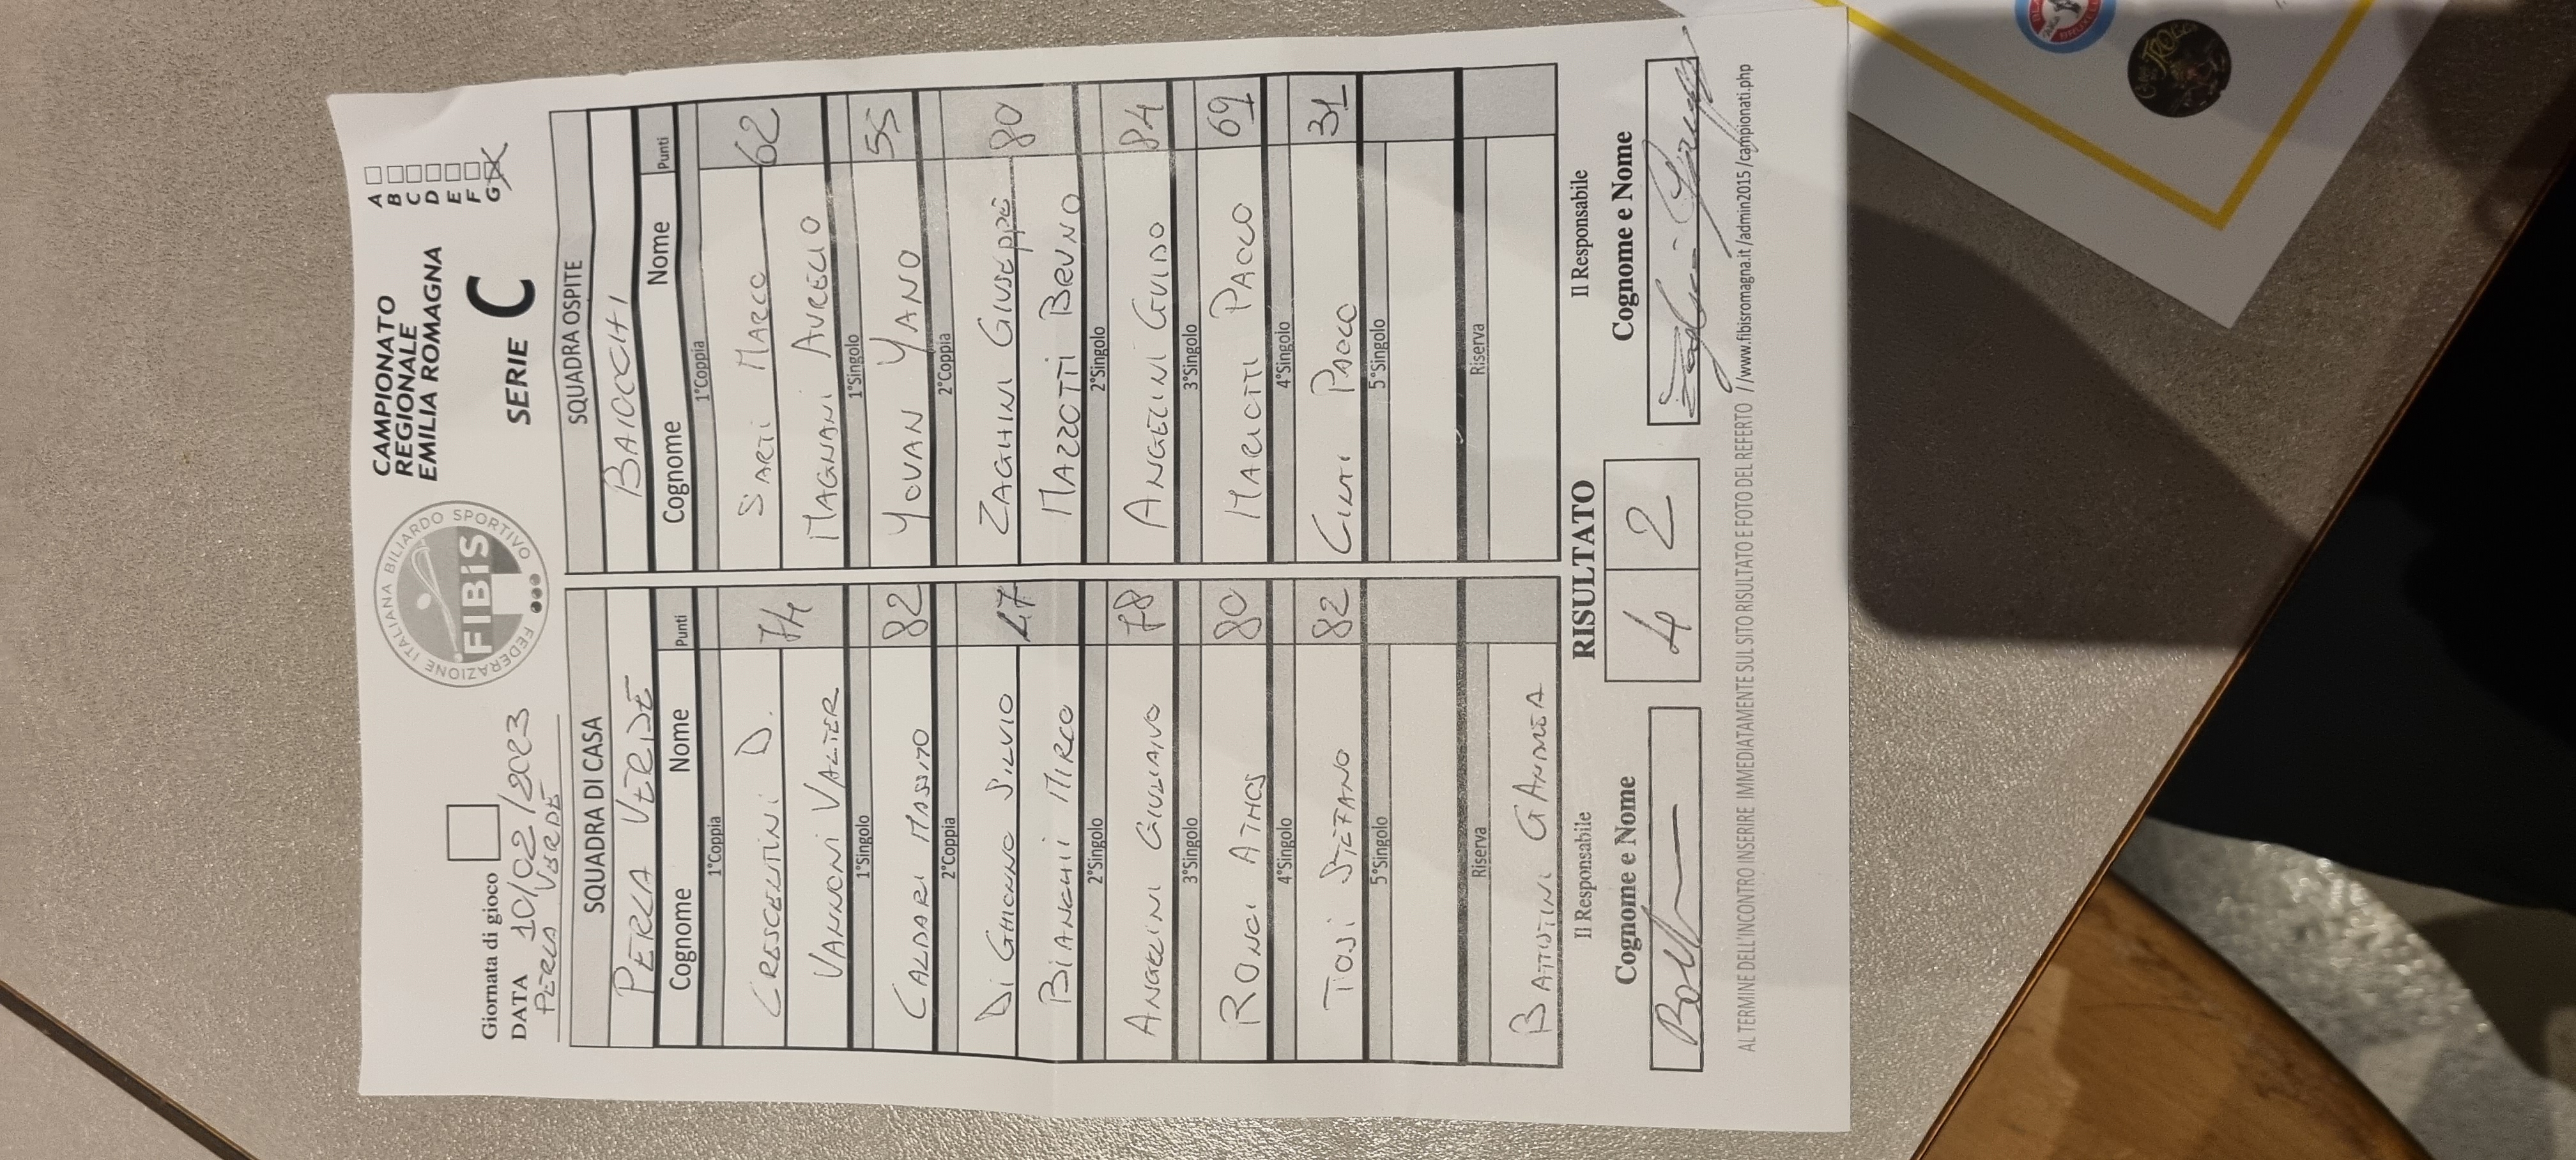 Giornata di gioco
DATA 10/02/2023
PERLA VERDE
FEDERAZIONE ITALIANA BILIARDO SPORTIVO
FIBiS
CAMPIONATO
REGIONALE
EMILIA ROMAGNA
SERIE C
A
B
C
D
E
F
G X
SQUADRA DI CASA
PERLA VERDE
Cognome Nome Punti
1°Coppia
CRESCENTINI D. 74
VANNONI VALTER
1°Singolo
CALDARI MASSIMO 82
2°Coppia
DI GHIONNO SILVIO 47
BIANCHI MIRCO
2°Singolo
ANGELINI GIULIANO 78
3°Singolo
RONCI ATHOS 80
4°Singolo
TOSI STEFANO 82
5°Singolo
Riserva
BATTISTINI GANDREA
SQUADRA OSPITE
BAIOCCHI
Cognome Nome Punti
1°Coppia
SARTI MARCO 62
MAGNANI AURELIO
1°Singolo
YOVAN YANO 55
2°Coppia
ZAGHINI GIUSEPPE 80
MAZZOTTI BRUNO
2°Singolo
ANGELINI GUIDO 84
3°Singolo
MARIOTTI PAOLO 69
4°Singolo
CINTI PAOLO 31
5°Singolo
Riserva
Il Responsabile
Cognome e Nome
RISULTATO
4 2
Il Responsabile
Cognome e Nome
AL TERMINE DELL'INCONTRO INSERIRE IMMEDIATAMENTE SUL SITO RISULTATO E FOTO DEL REFERTO //www.fibisromagna.it/admin2015/campionati.php